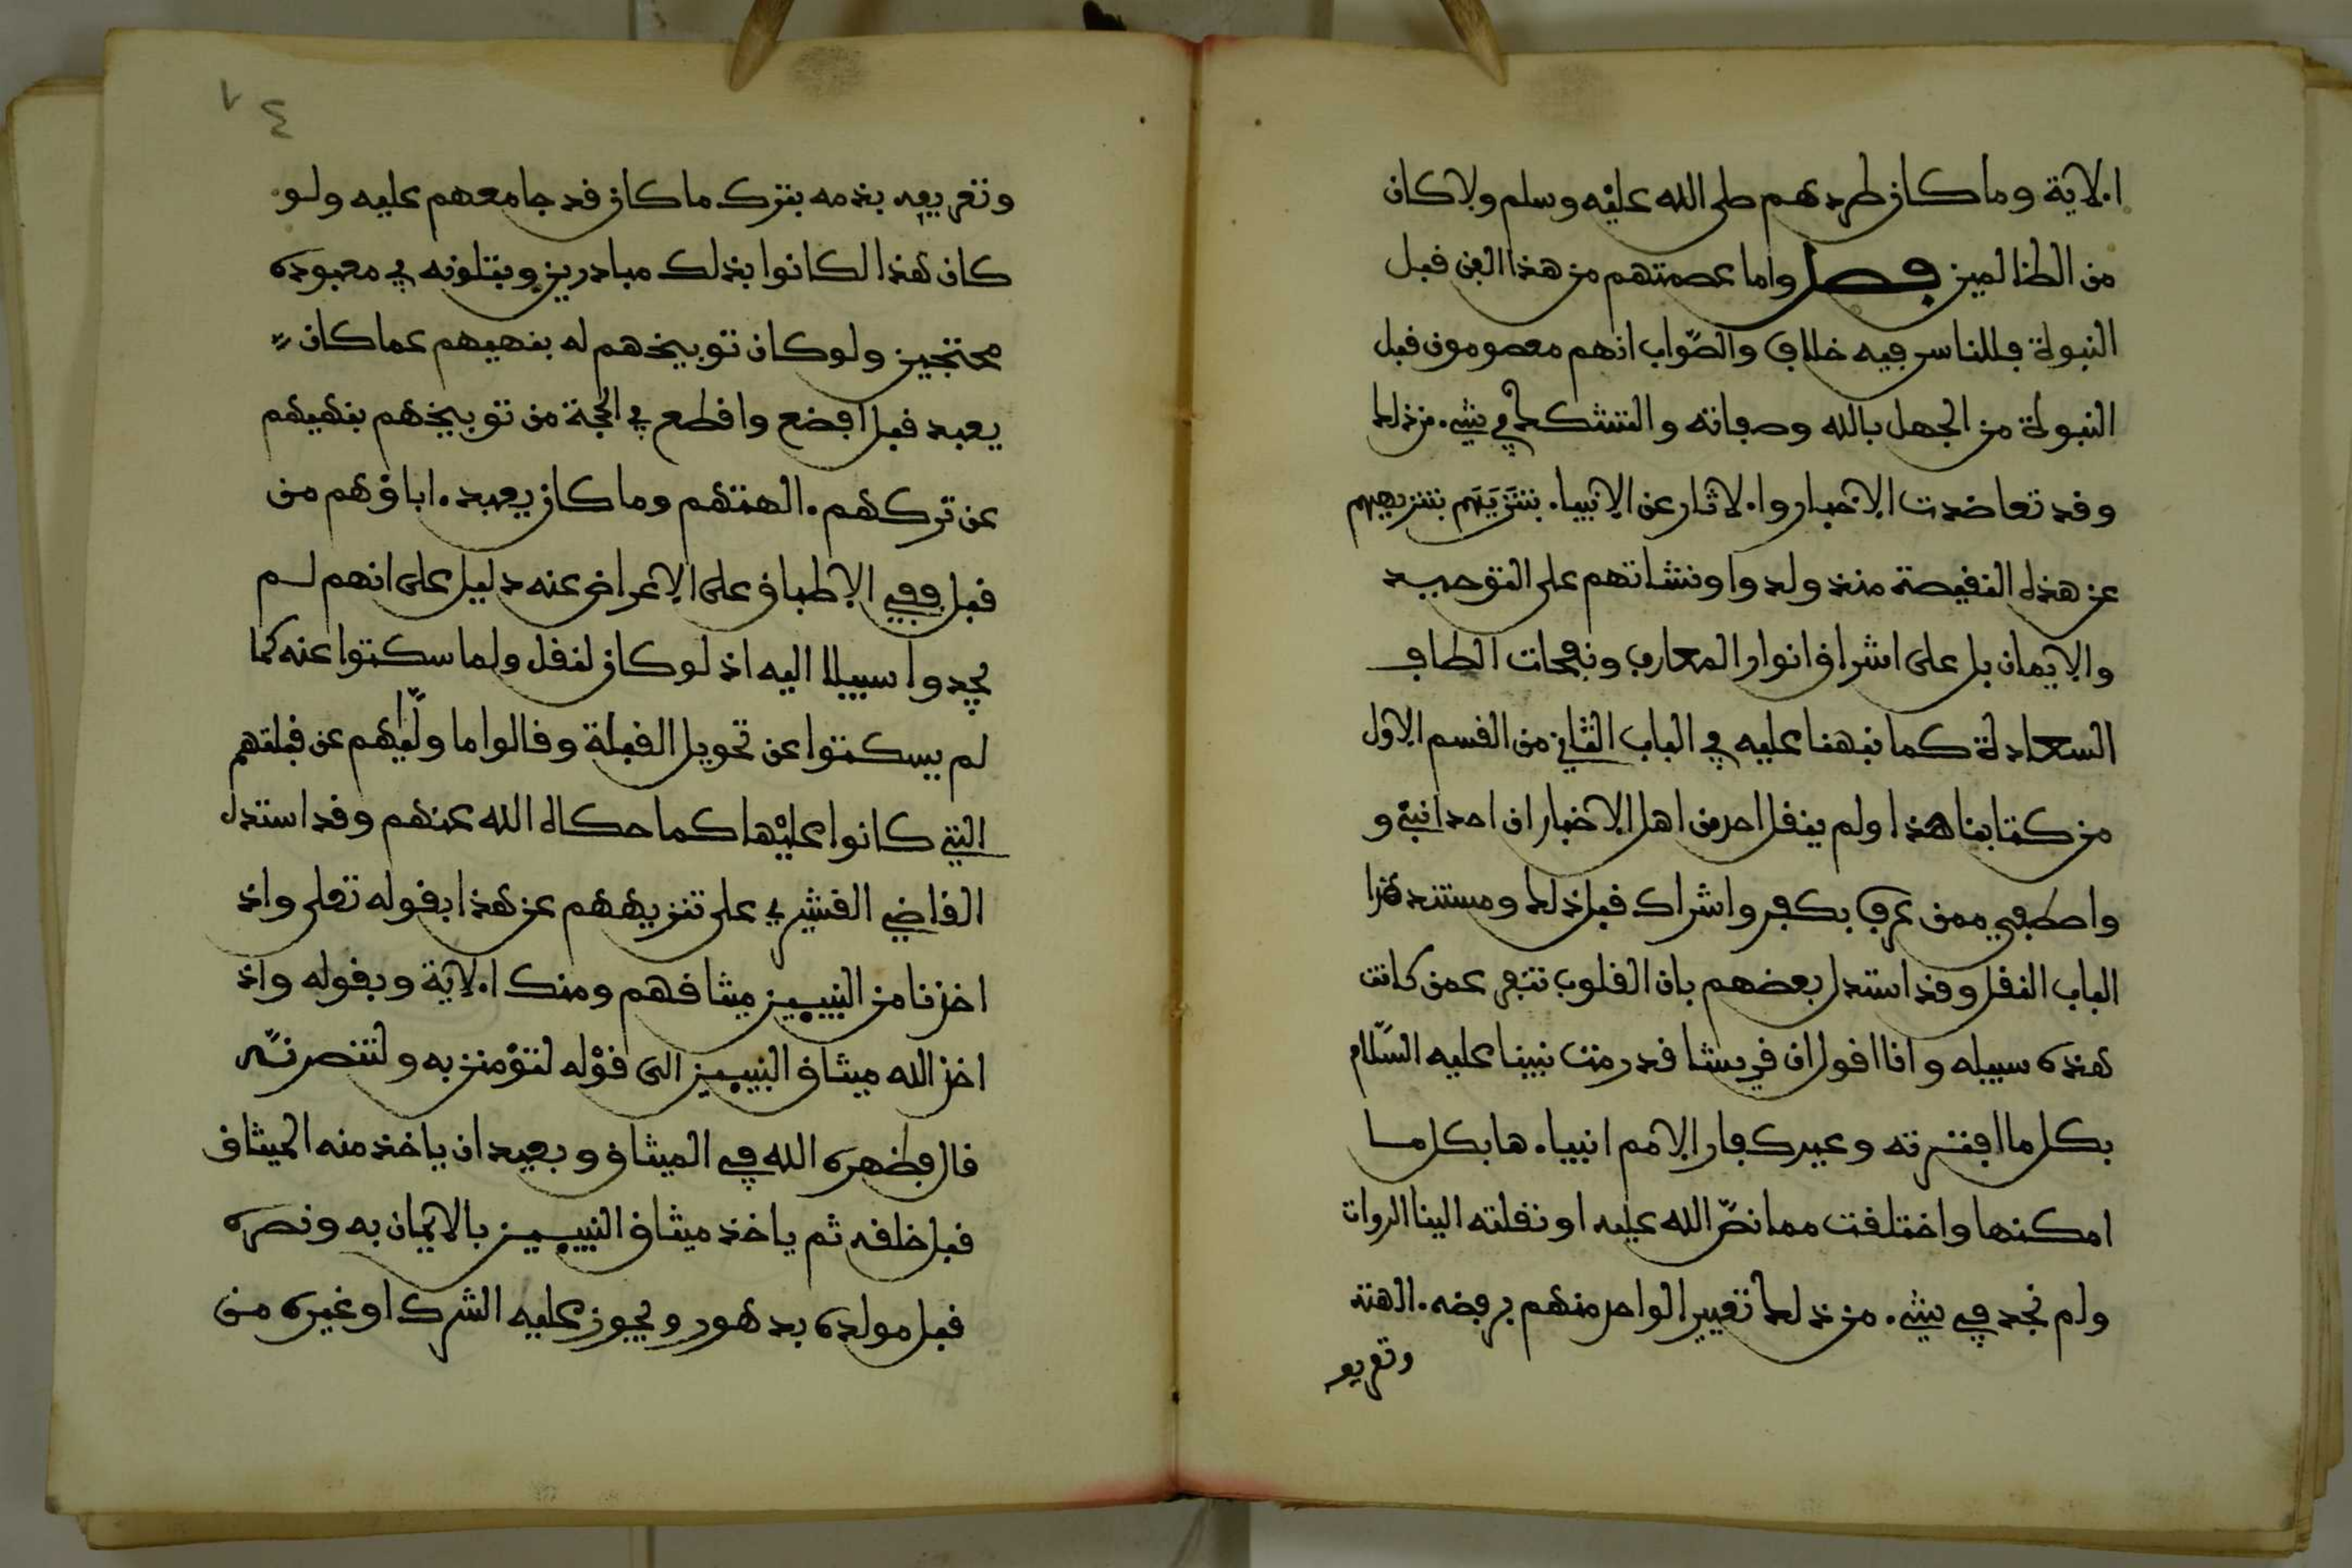 الاية وما كان طردهم صلى الله عليه وسلم ولا كان
من الظالمين فصل واما عصمتهم من هذا الفن قبل
النبوة فللناس فيه خلاف والصواب انهم معصومون قبل
النبوة من الجهل بالله وصفاته والتشكك في شيء من ذلك
وقد تعاضدت الاخبار والاثار عن الانبياء بتنزيههم
عن هذه النقيصة منذ ولدوا ونشاتهم على التوحيد
والايمان بل على اشراق انوار المعارف ونفحات الطاف
السعادة كما نبهنا عليه في الباب الثاني من القسم الاول
من كتابنا هذا ولم ينقل احد من اهل الاخبار ان احدا نبئ و
واصطفي ممن عرف بكفر واشراك قبل ذلك ومستند هذا
الباب النقل وقد استدل بعضهم بان القلوب تنفر عمن كانت
هذه سبيله وانا اقول ان قريشا قد رمت نبينا عليه السلام
بكل ما افترته وعير كفار الامم انبياءها بكل ما
امكنها واختلفت مما نص الله عليه او نقلته الينا الروات
ولم نجد في شيء من ذلك تعيير الواحد منهم برفضه الهته
وتقريعـ
٧٤
وتقريعه بذمه بترك ما كان قد جامعهم عليه ولو
كان هذا لكانوا بذلك مبادرين وبتلونه في معبوده
محتجين ولو كان توبيخهم له بنهيهم عما كان
يعبد قبل افضع واقطع في الحجة من توبيخهم بنهيهم
عن تركهم الهتهم وما كان يعبد اباؤهم من
قبل ففي الاطباق على الاعراض عنه دليل على انهم لم
يجدوا سبيلا اليه اذ لو كان لنقل ولما سكتوا عنه كما
لم يسكتوا عن تحويل القبلة وقالوا ما ولّيهم عن قبلتهم
التي كانوا عليها كما حكاه الله عنهم وقد استدل
القاضي القشيري على تنزيههم عن هذا بقوله تعلى واذ
اخذنا من النبيين ميثاقهم ومنك الاية وبقوله واذ
اخذ الله ميثاق النبيين الى قوله لتؤمنن به ولتنصرنه
قال فطهره الله في الميثاق وبعيد ان ياخذ منه الميثاق
قبل خلقه ثم ياخذ ميثاق النبيين بالايمان به ونصره
قبل مولده بدهور ويجوز عليه الشرك او غيره من